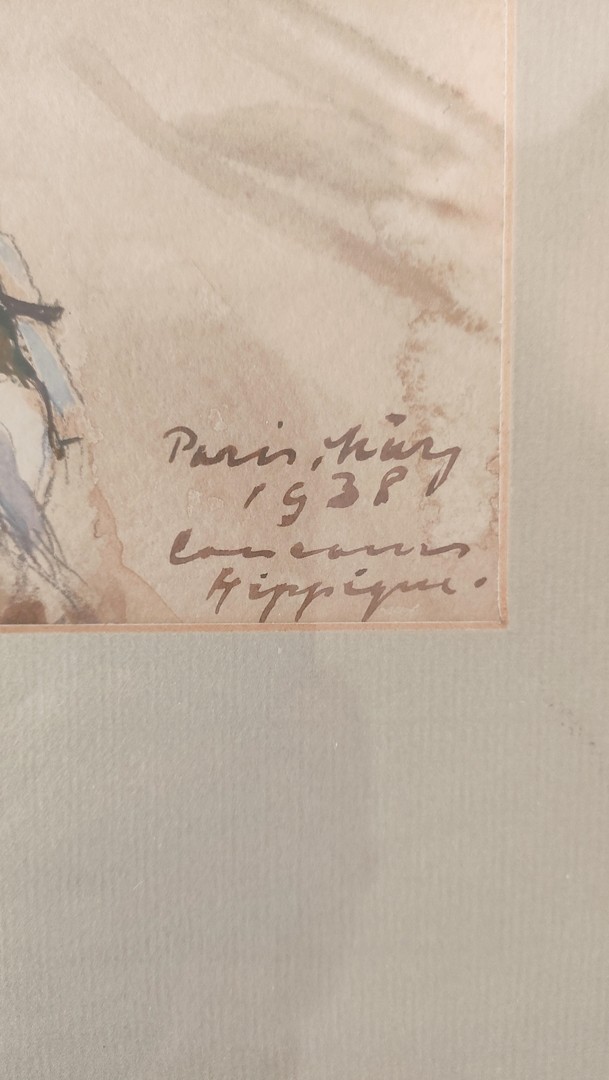 Paris, März
1938
Concours
Hippique.